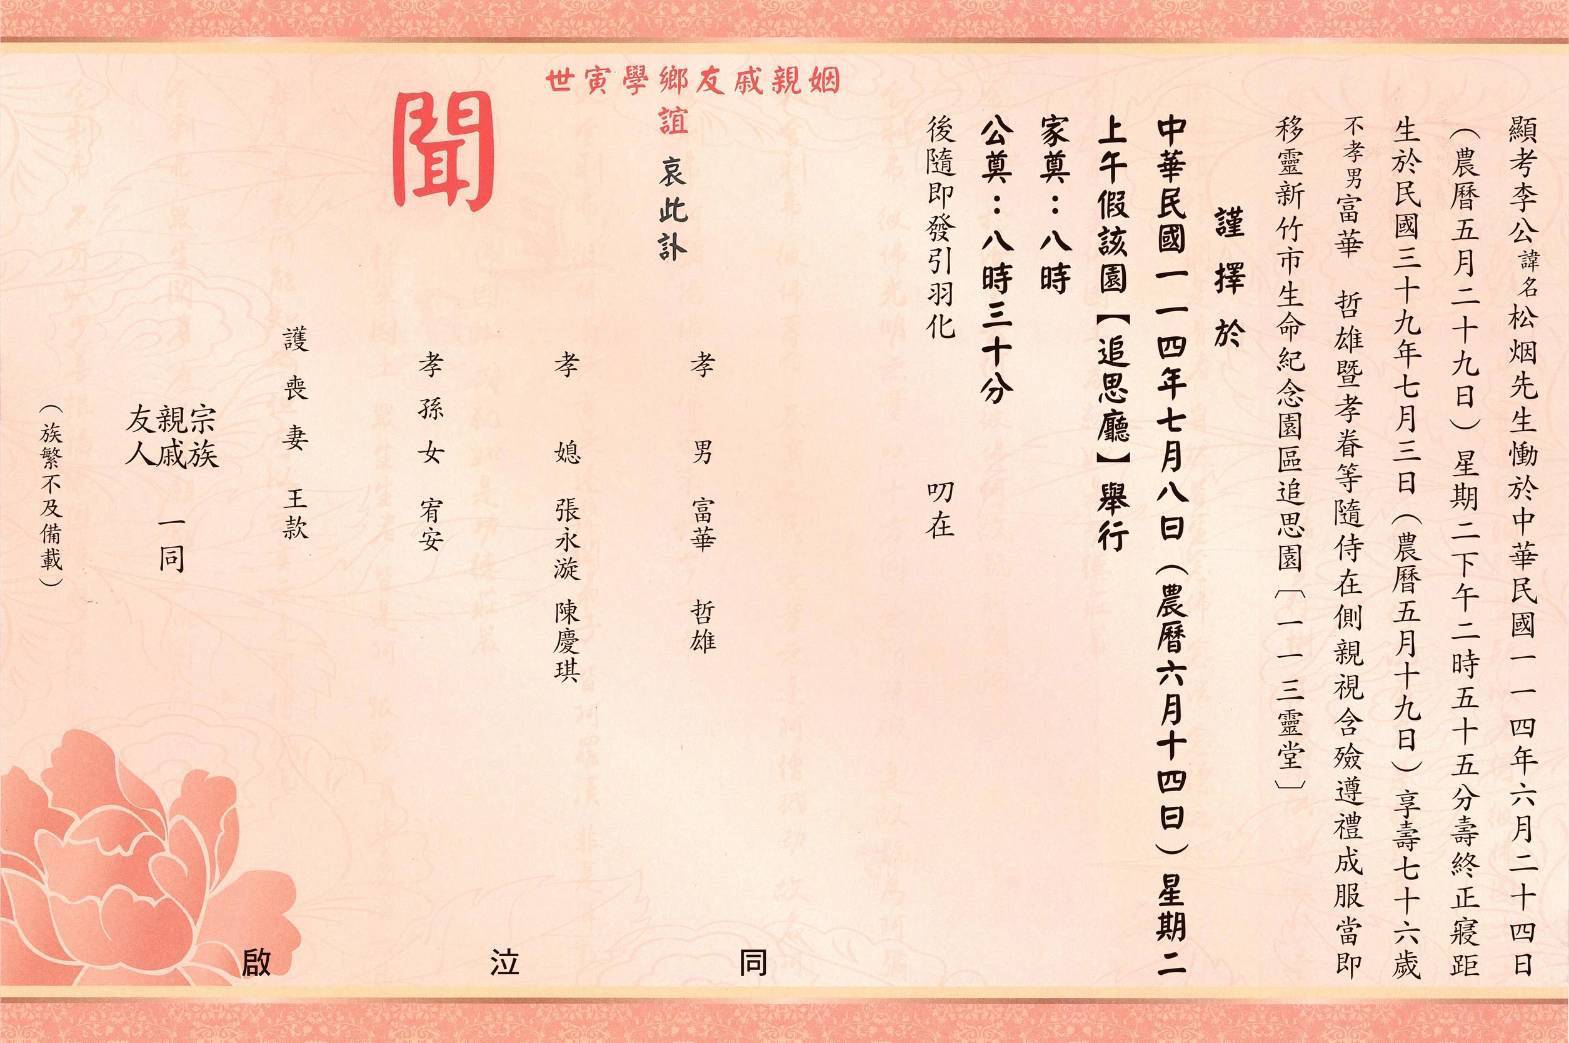 顯考李公諱名松烟先生慟於中華民國一一四年六月二十四日
（農曆五月二十九日）星期二下午二時五十五分壽終正寢距
生於民國三十九年七月三日（農曆五月十九日）享壽七十六歲
不孝男富華　哲雄暨孝眷等隨侍在側親視含殮遵禮成服當即
移靈新竹市生命紀念園區追思園〔一一三靈堂〕
謹擇於
中華民國一一四年七月八日（農曆六月十四日）星期二
上午假該園【追思廳】舉行
家奠：八時
公奠：八時三十分
後隨即發引羽化　叨在
姻親戚友鄉學寅世
誼　哀此訃
聞
孝男　富華　哲雄
孝媳　張永漩　陳慶琪
孝孫女　宥安
護喪妻　王款
宗族
親戚　一同
友人
（族繁不及備載）
同泣啟